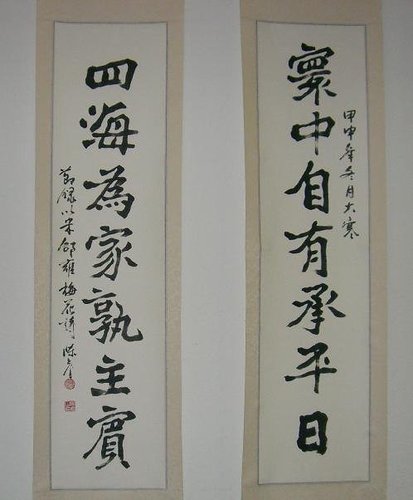 寰中自有承平日
甲申年冬月大寒
四海為家孰主賓
節錄以宋邵雍梅花詩